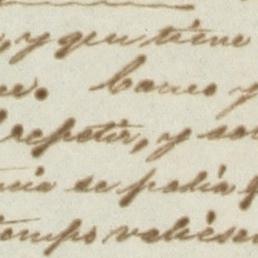 , y que tiene
ue. Canco y
repetir, y so
ncia se podia
tiempo valiese